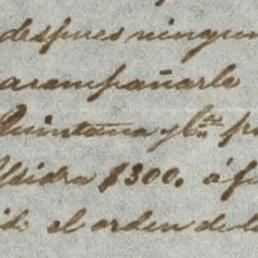 despues ningun
acompañarle
Quintana y
Ysidra $300. á f
el orden de l